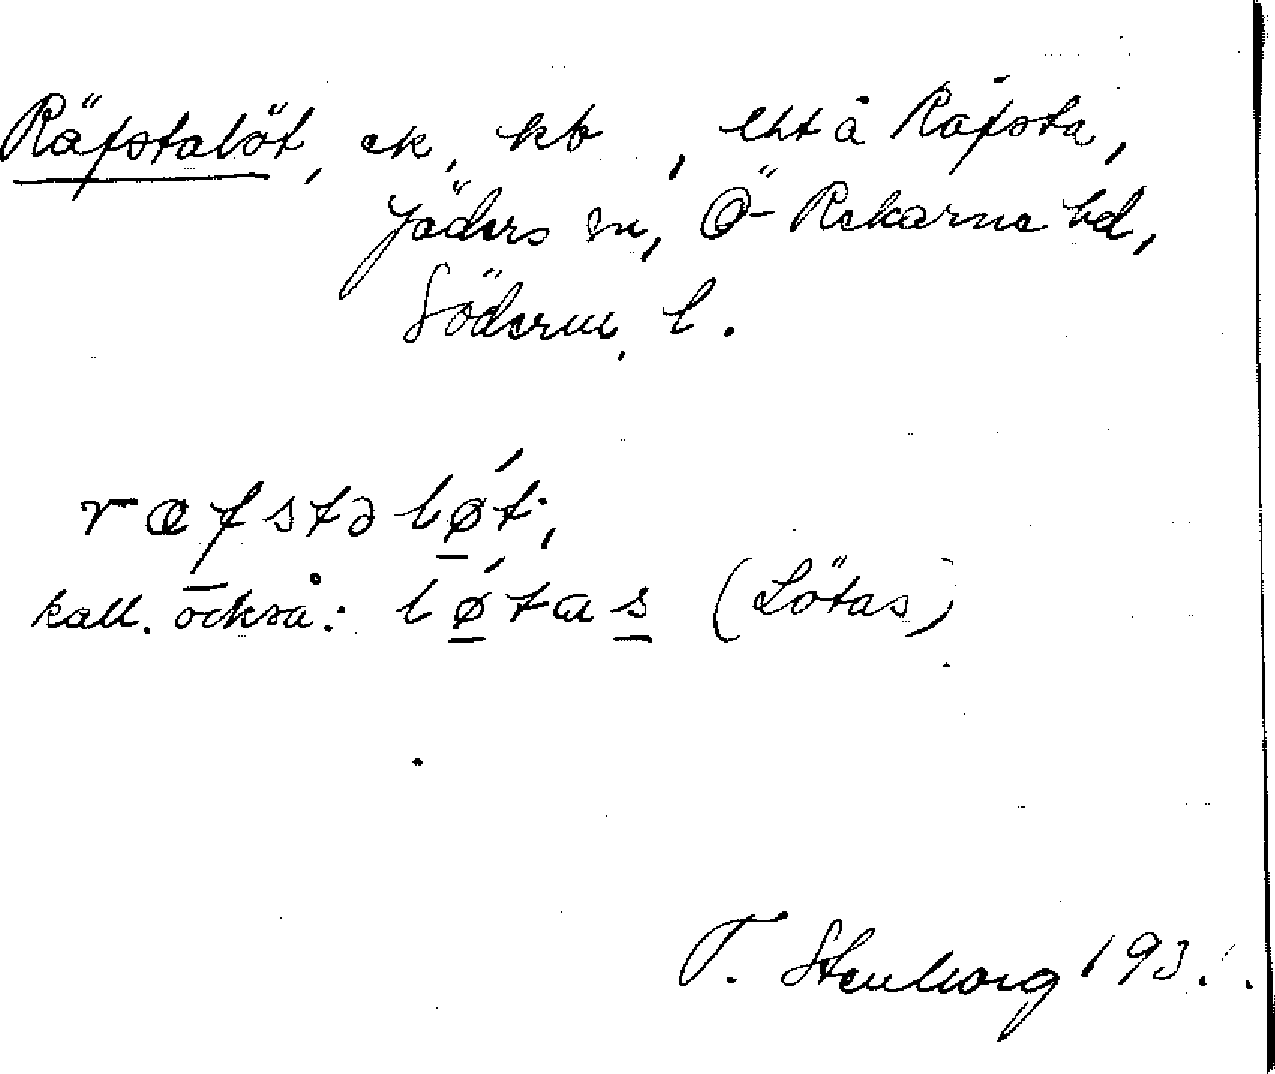 Räfstalöt, ek, kb, eht å Räfsta,
Jäders sn, Ö-Rekarne hd,
Söderm. l.
ræfstəlǿt,
kall. också: lǿtas (Lötas)
T. Stenborg 193